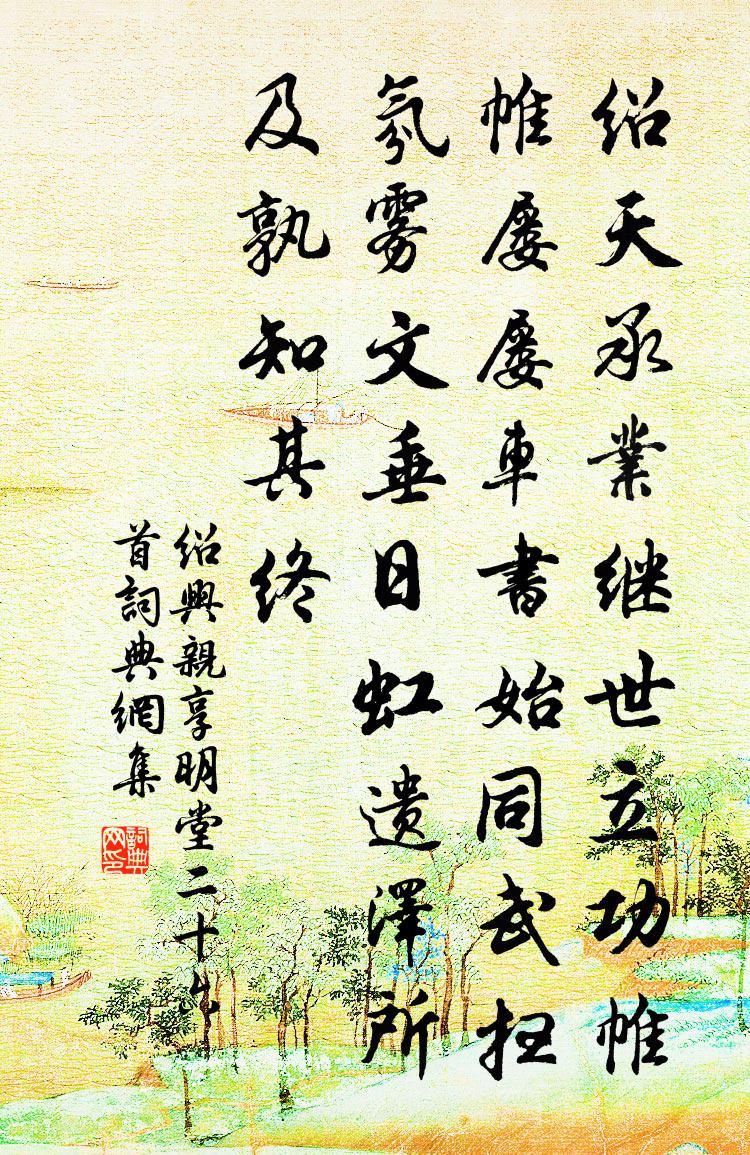 绍天承業继世立功帷
帷屡屡車書始同武扫
氛雾文垂日虹遺澤所
及孰知其终
绍興親享明堂二十六
首詞典網集
詞典
网印